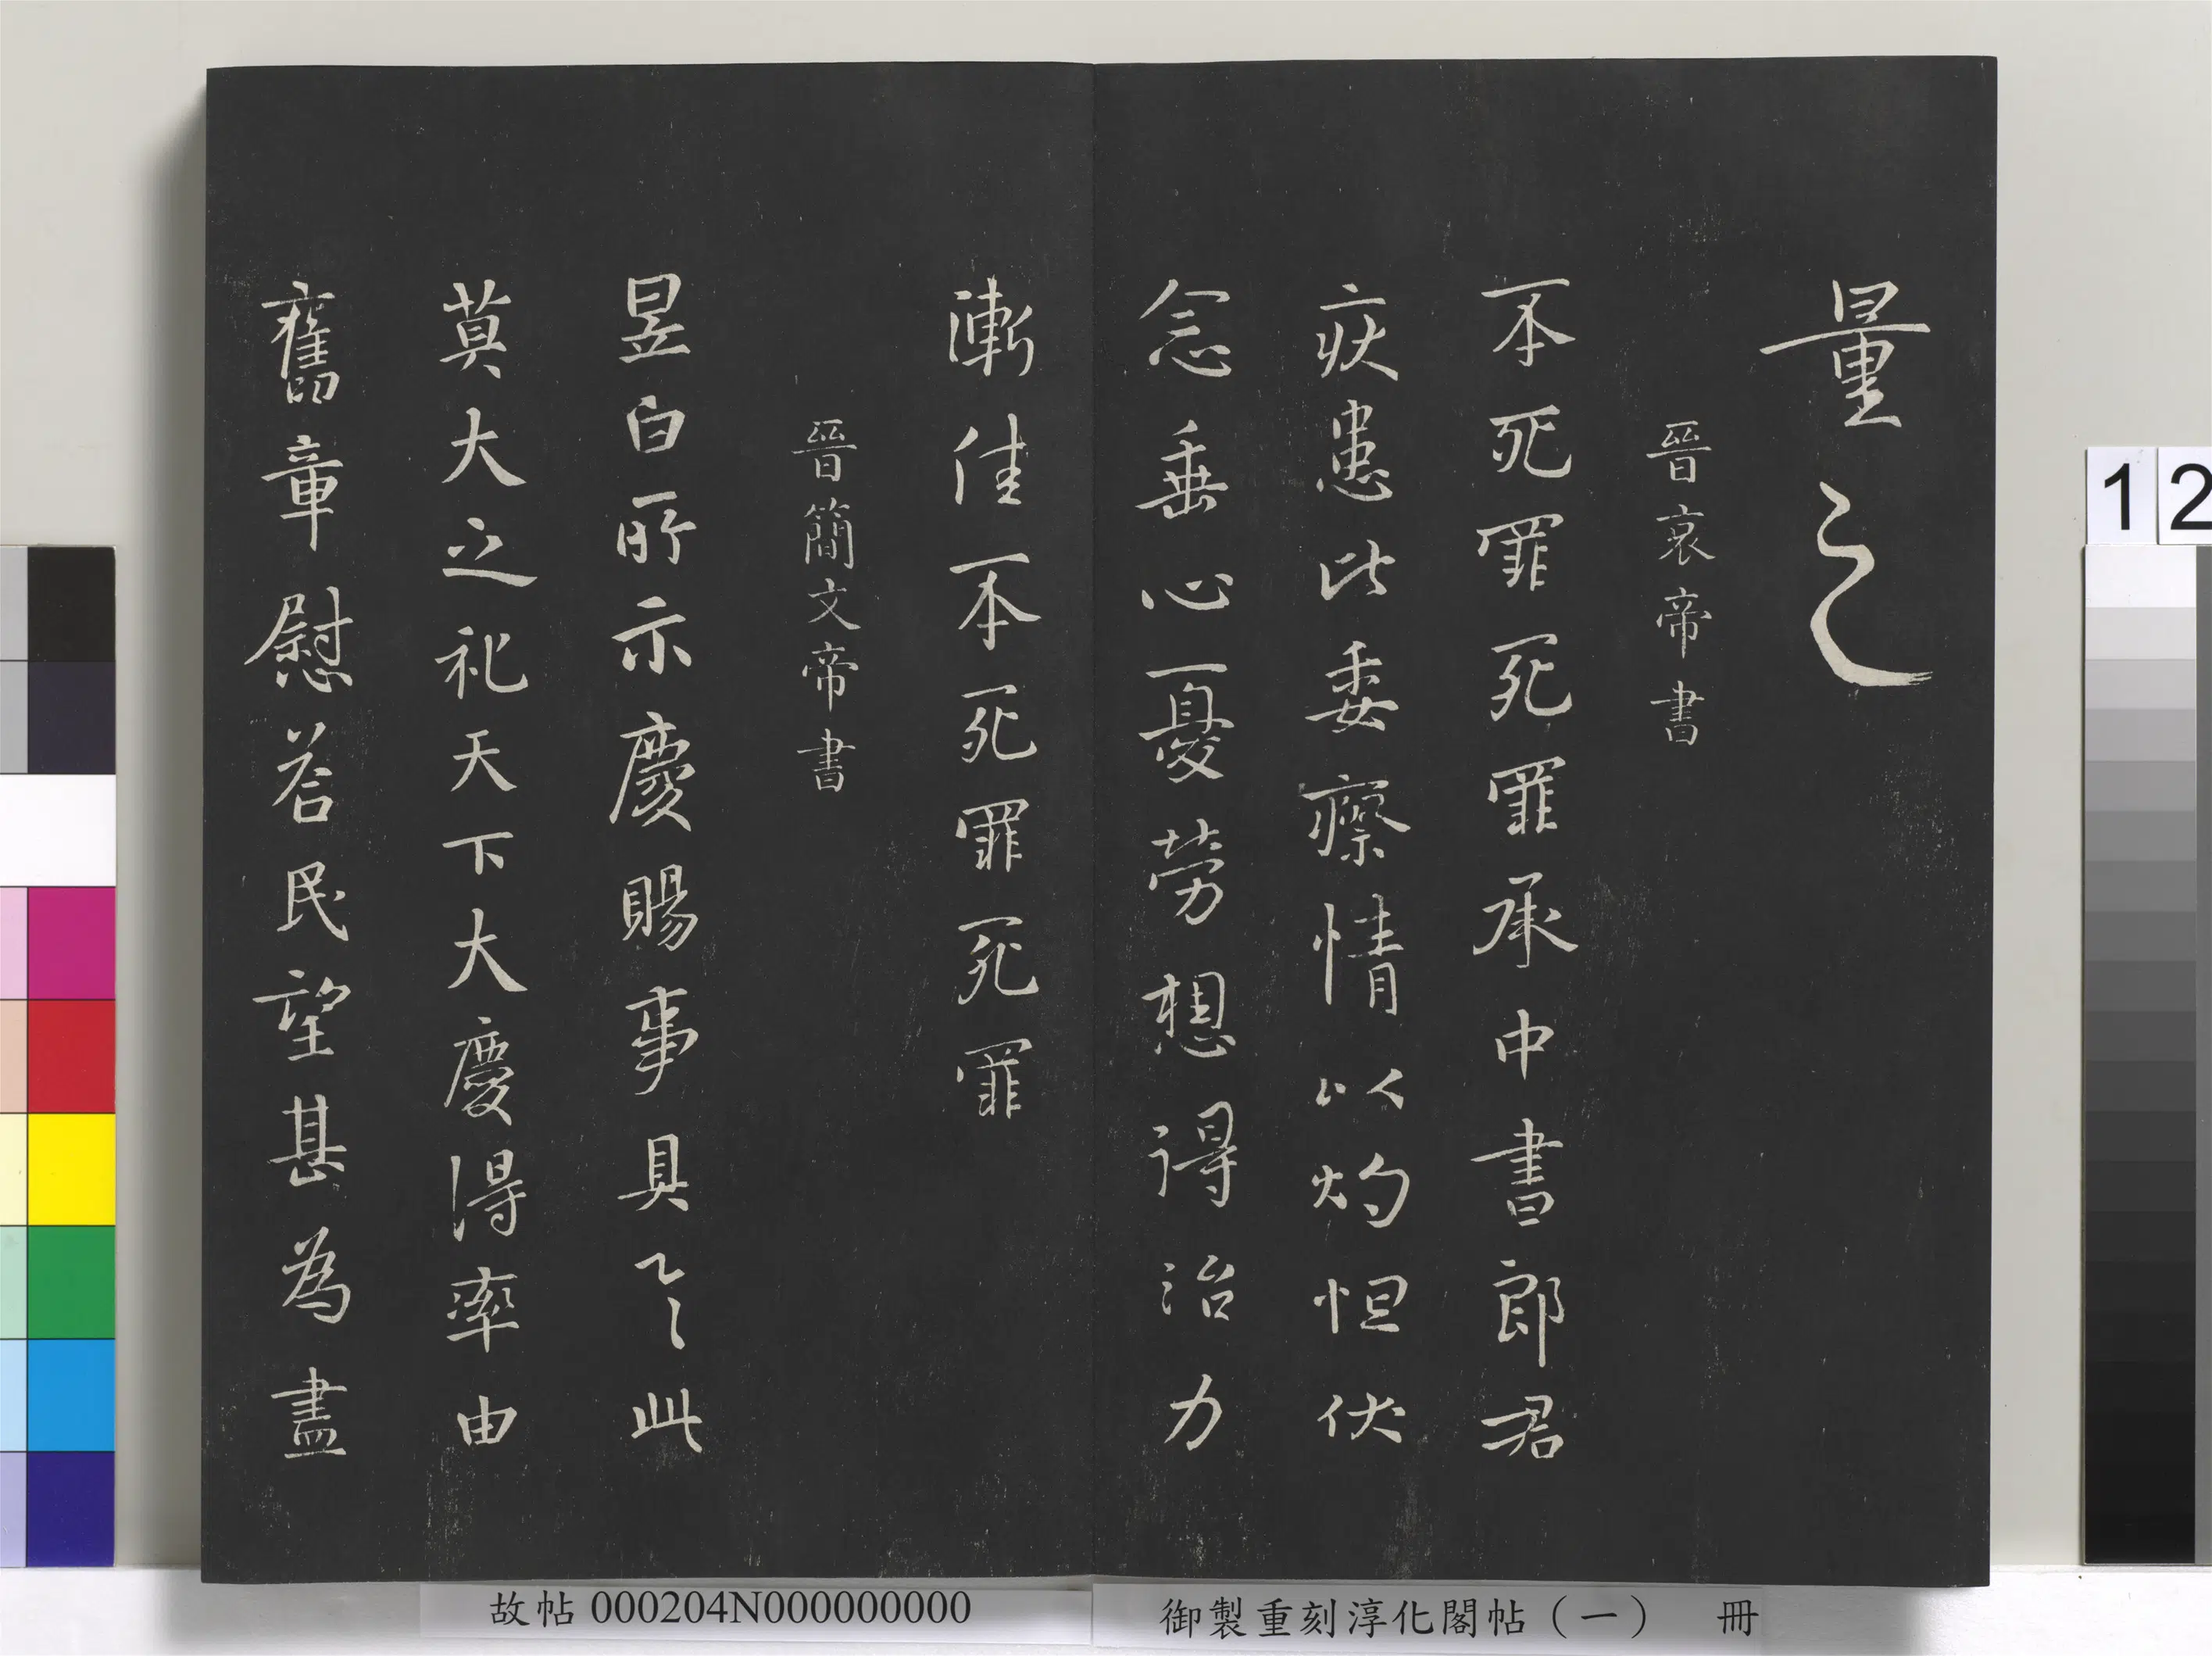 量之
晉哀帝書
不死罪死罪承中書郎君
疾患比委瘵情以灼怛伏
念垂心憂勞想得治力
漸佳不死罪死罪
晉簡文帝書
昱白所示慶賜事具之此
莫大之祀天下大慶得率由
舊章慰荅民望甚為盡
故帖 000204N000000000
御製重刻淳化閣帖（一） 冊
12